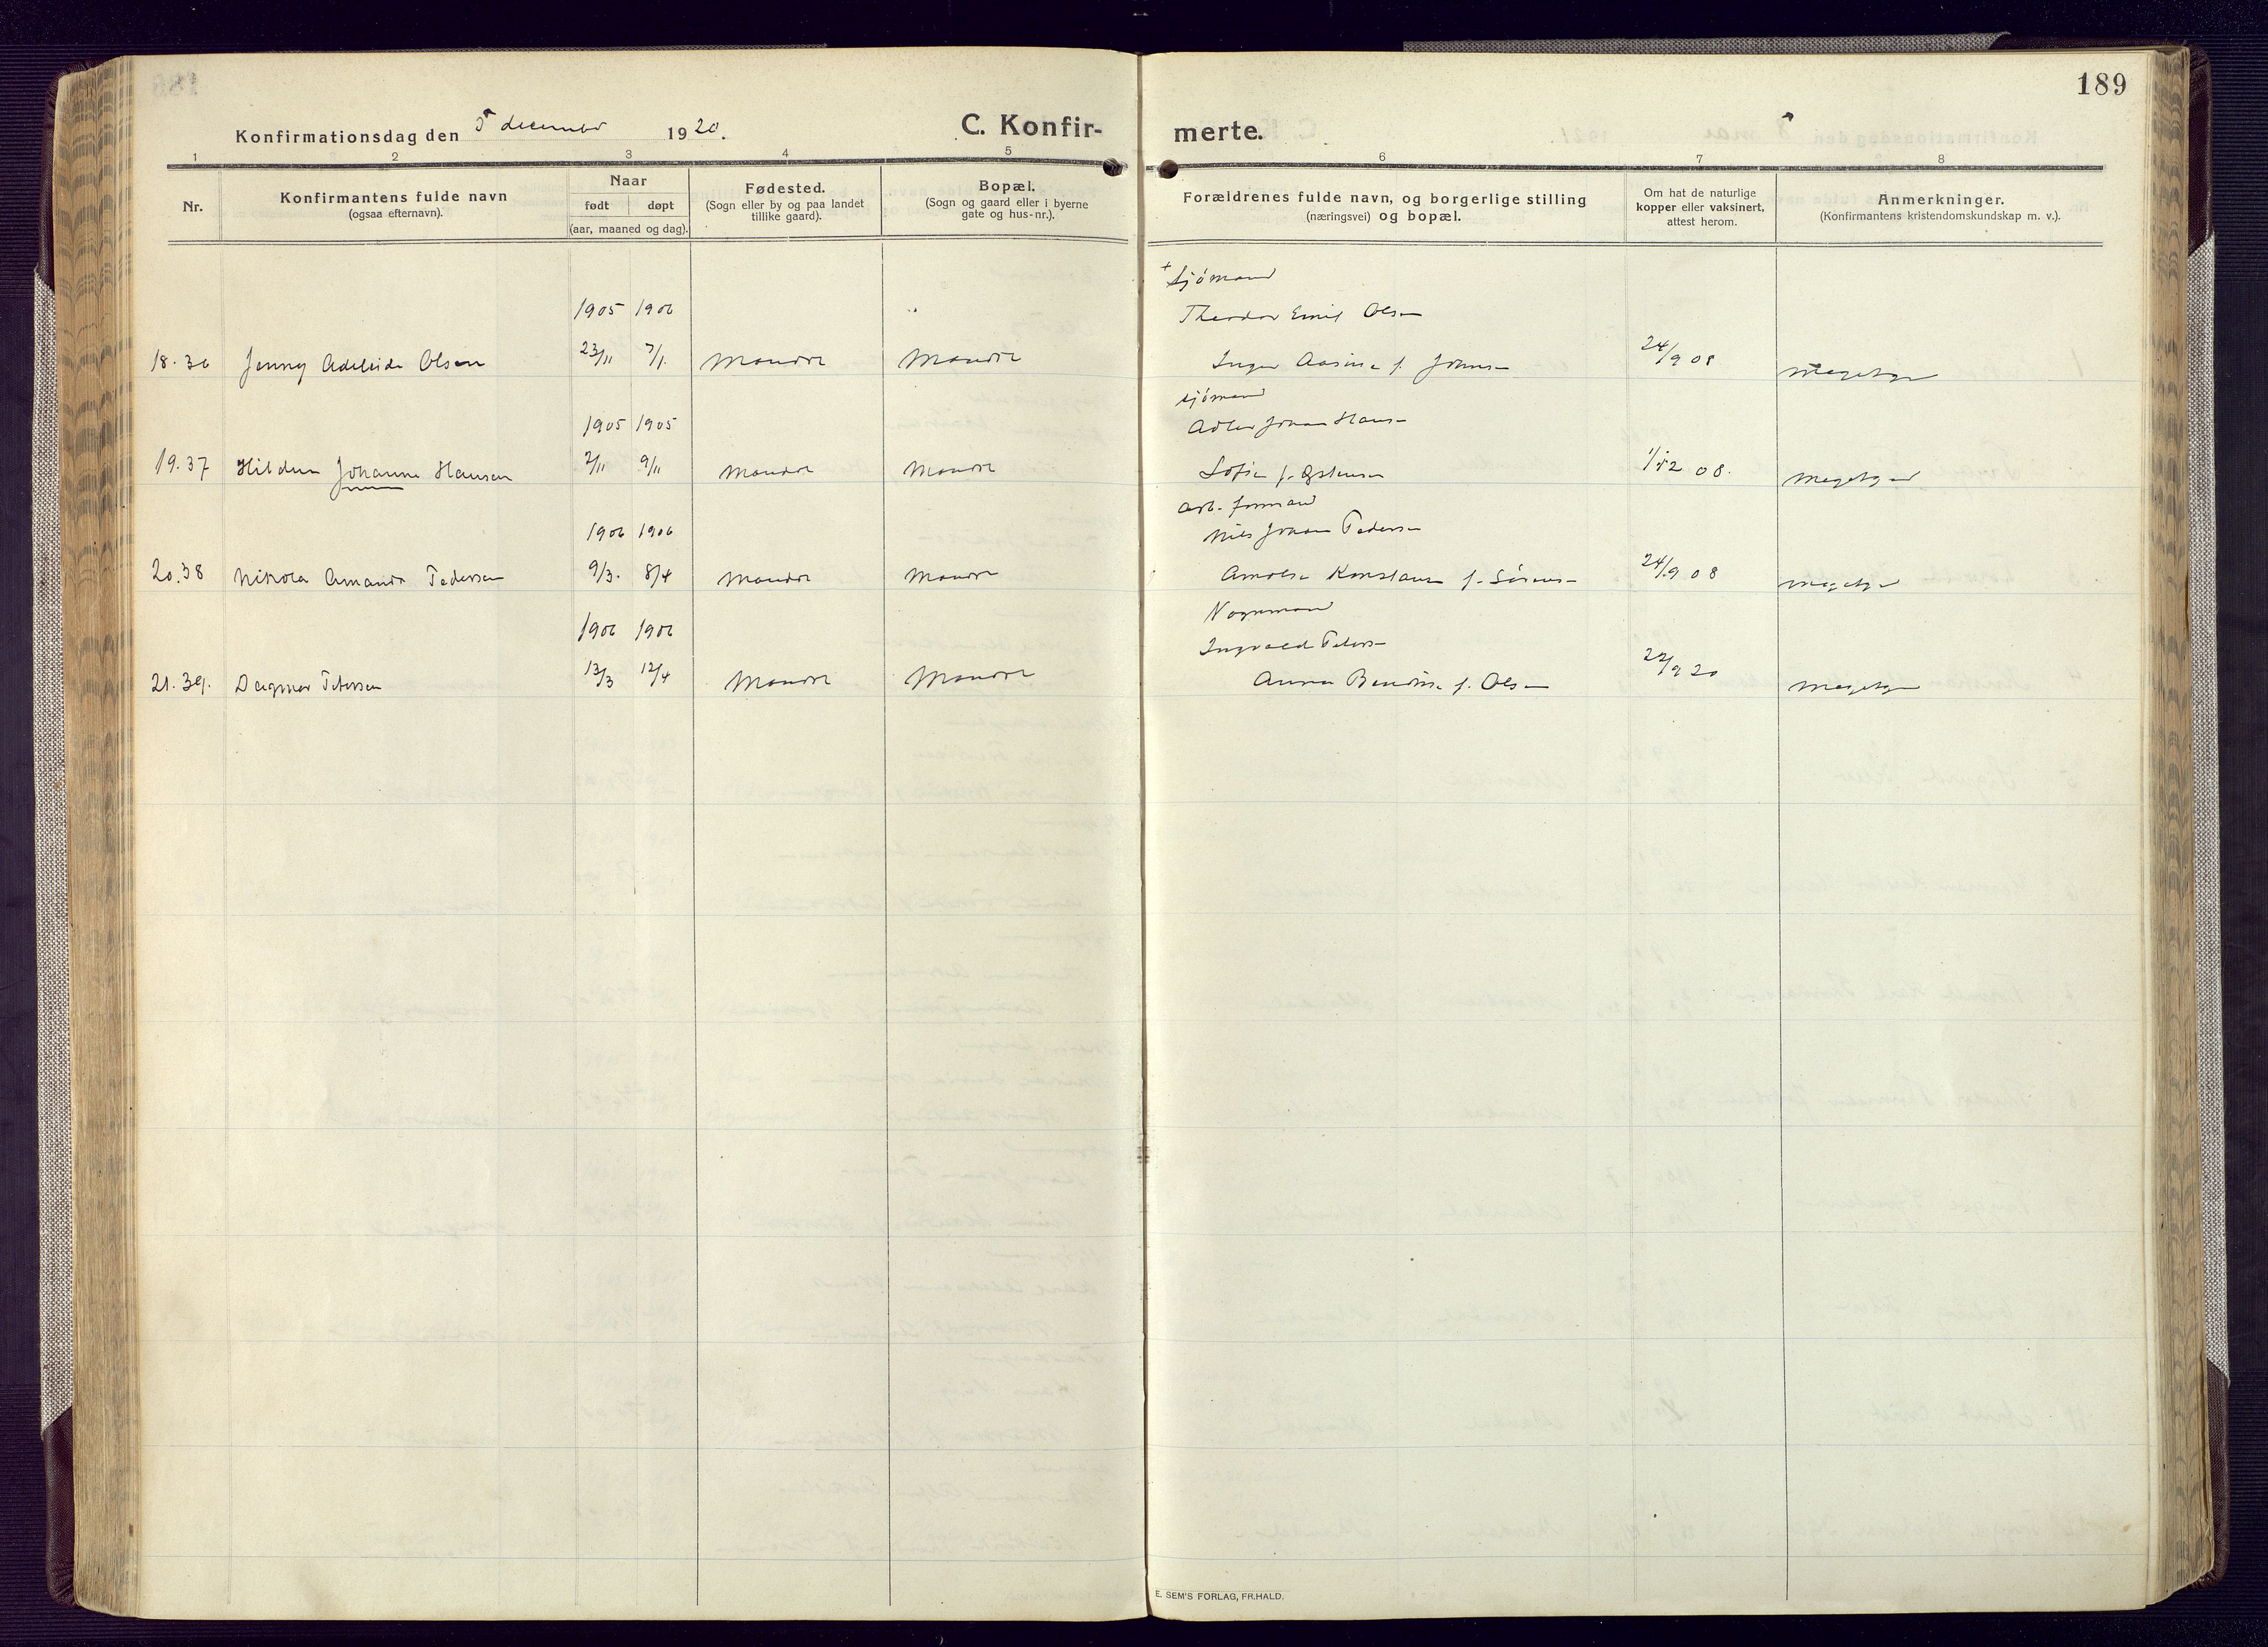 189
Konfirmationsdag den 5 december 1920.
C. Konfir-
merte.
1 2 3 4 5 6 7 8
Nr.
Konfirmantens fulde navn
(ogsaa efternavn).
Naar
født døpt
(aar, maaned og dag).
Fødested.
(Sogn eller by og paa landet
tillike gaard).
Bopæl.
(Sogn og gaard eller i byerne
gate og hus-nr.).
Forældrenes fulde navn, og borgerlige stilling
(næringsvei) og bopæl.
Om hat de naturlige
kopper eller vaksinert,
attest herom.
Anmerkninger.
(Konfirmantens kristendomskundskap m. v.).
+ Sjömand
1905 1906 Theodor Emil Olsen
18.36 Jenny Adeleide Olsen 23/11 7/1. Mandal Mandal Inger Aasine f. Johnsen 24/9 08
sjömand
1905 1905 Adler Johan Hansen
19.37 Johanne Hansen 2/11 9/11 Mandal Mandal Sofie f. 1/12 08.
arb. formand
1906 1906 Nils Johan Pedersen
20.38 Nikola Amanda Pedersen 9/3. 8/4 Mandal Mandal Konstanse f. Sörensen 24/9 08
Vognmand
1906 1906 Ingvald Petersen
21.39. Dagmar Petersen 13/3 12/4 Mandal Mandal Anna Bendine f. Olsen 22/9 20
E. SEM'S FORLAG, FR.HALD.